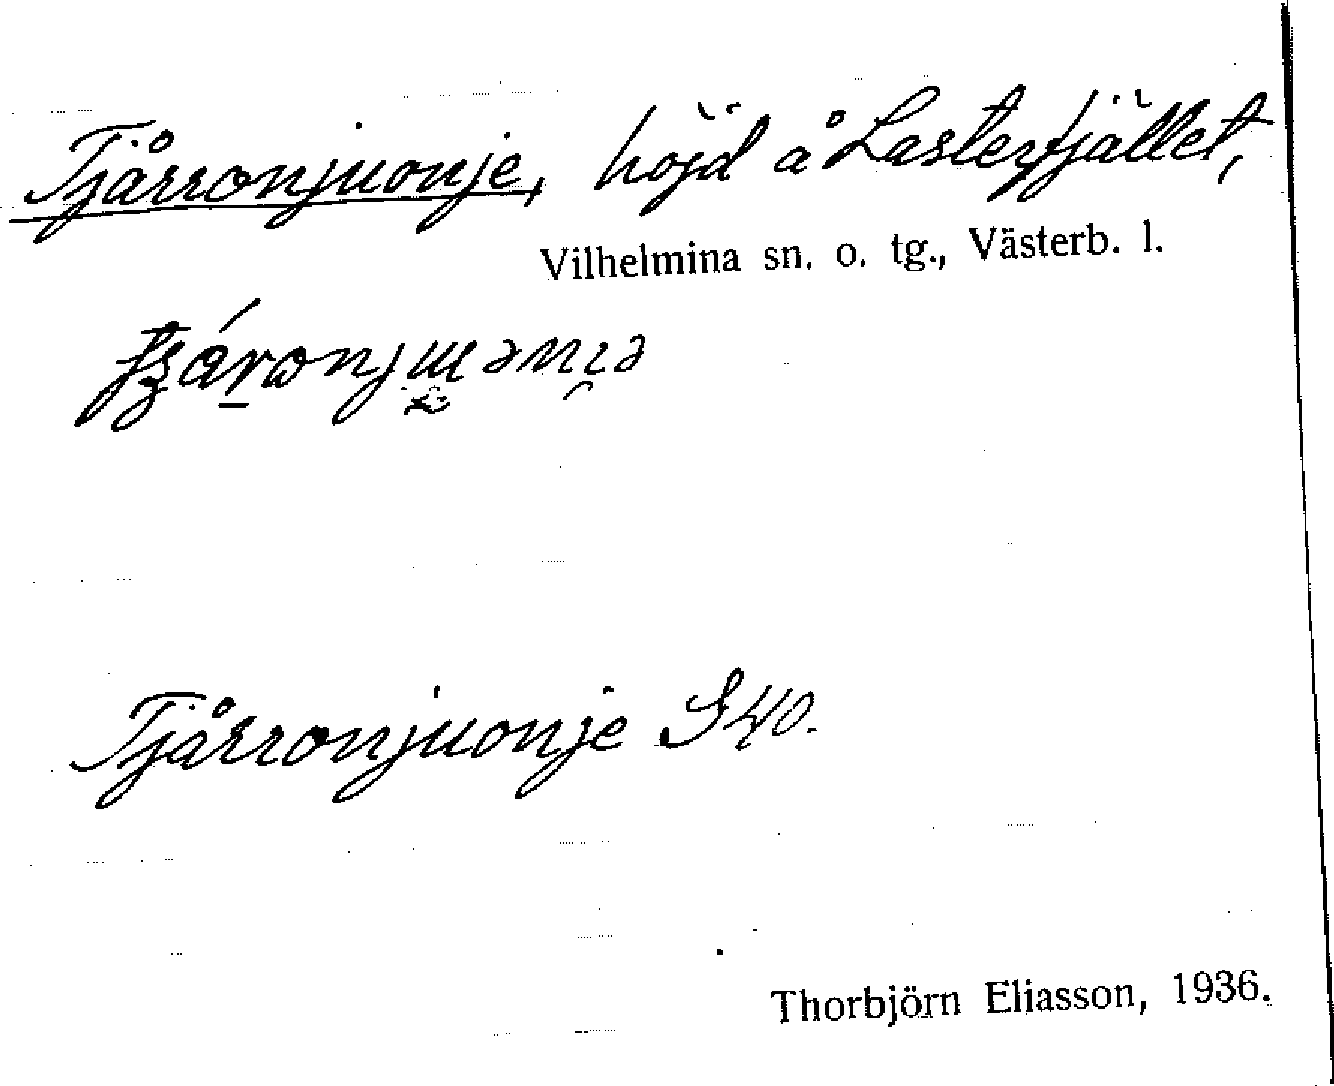 Tjårronjuonje, höjd å Lasterfjället,
Vilhelmina sn. o. tg., Västerb. l.
Tjårronjuonje S40.
Thorbjörn Eliasson, 1936.